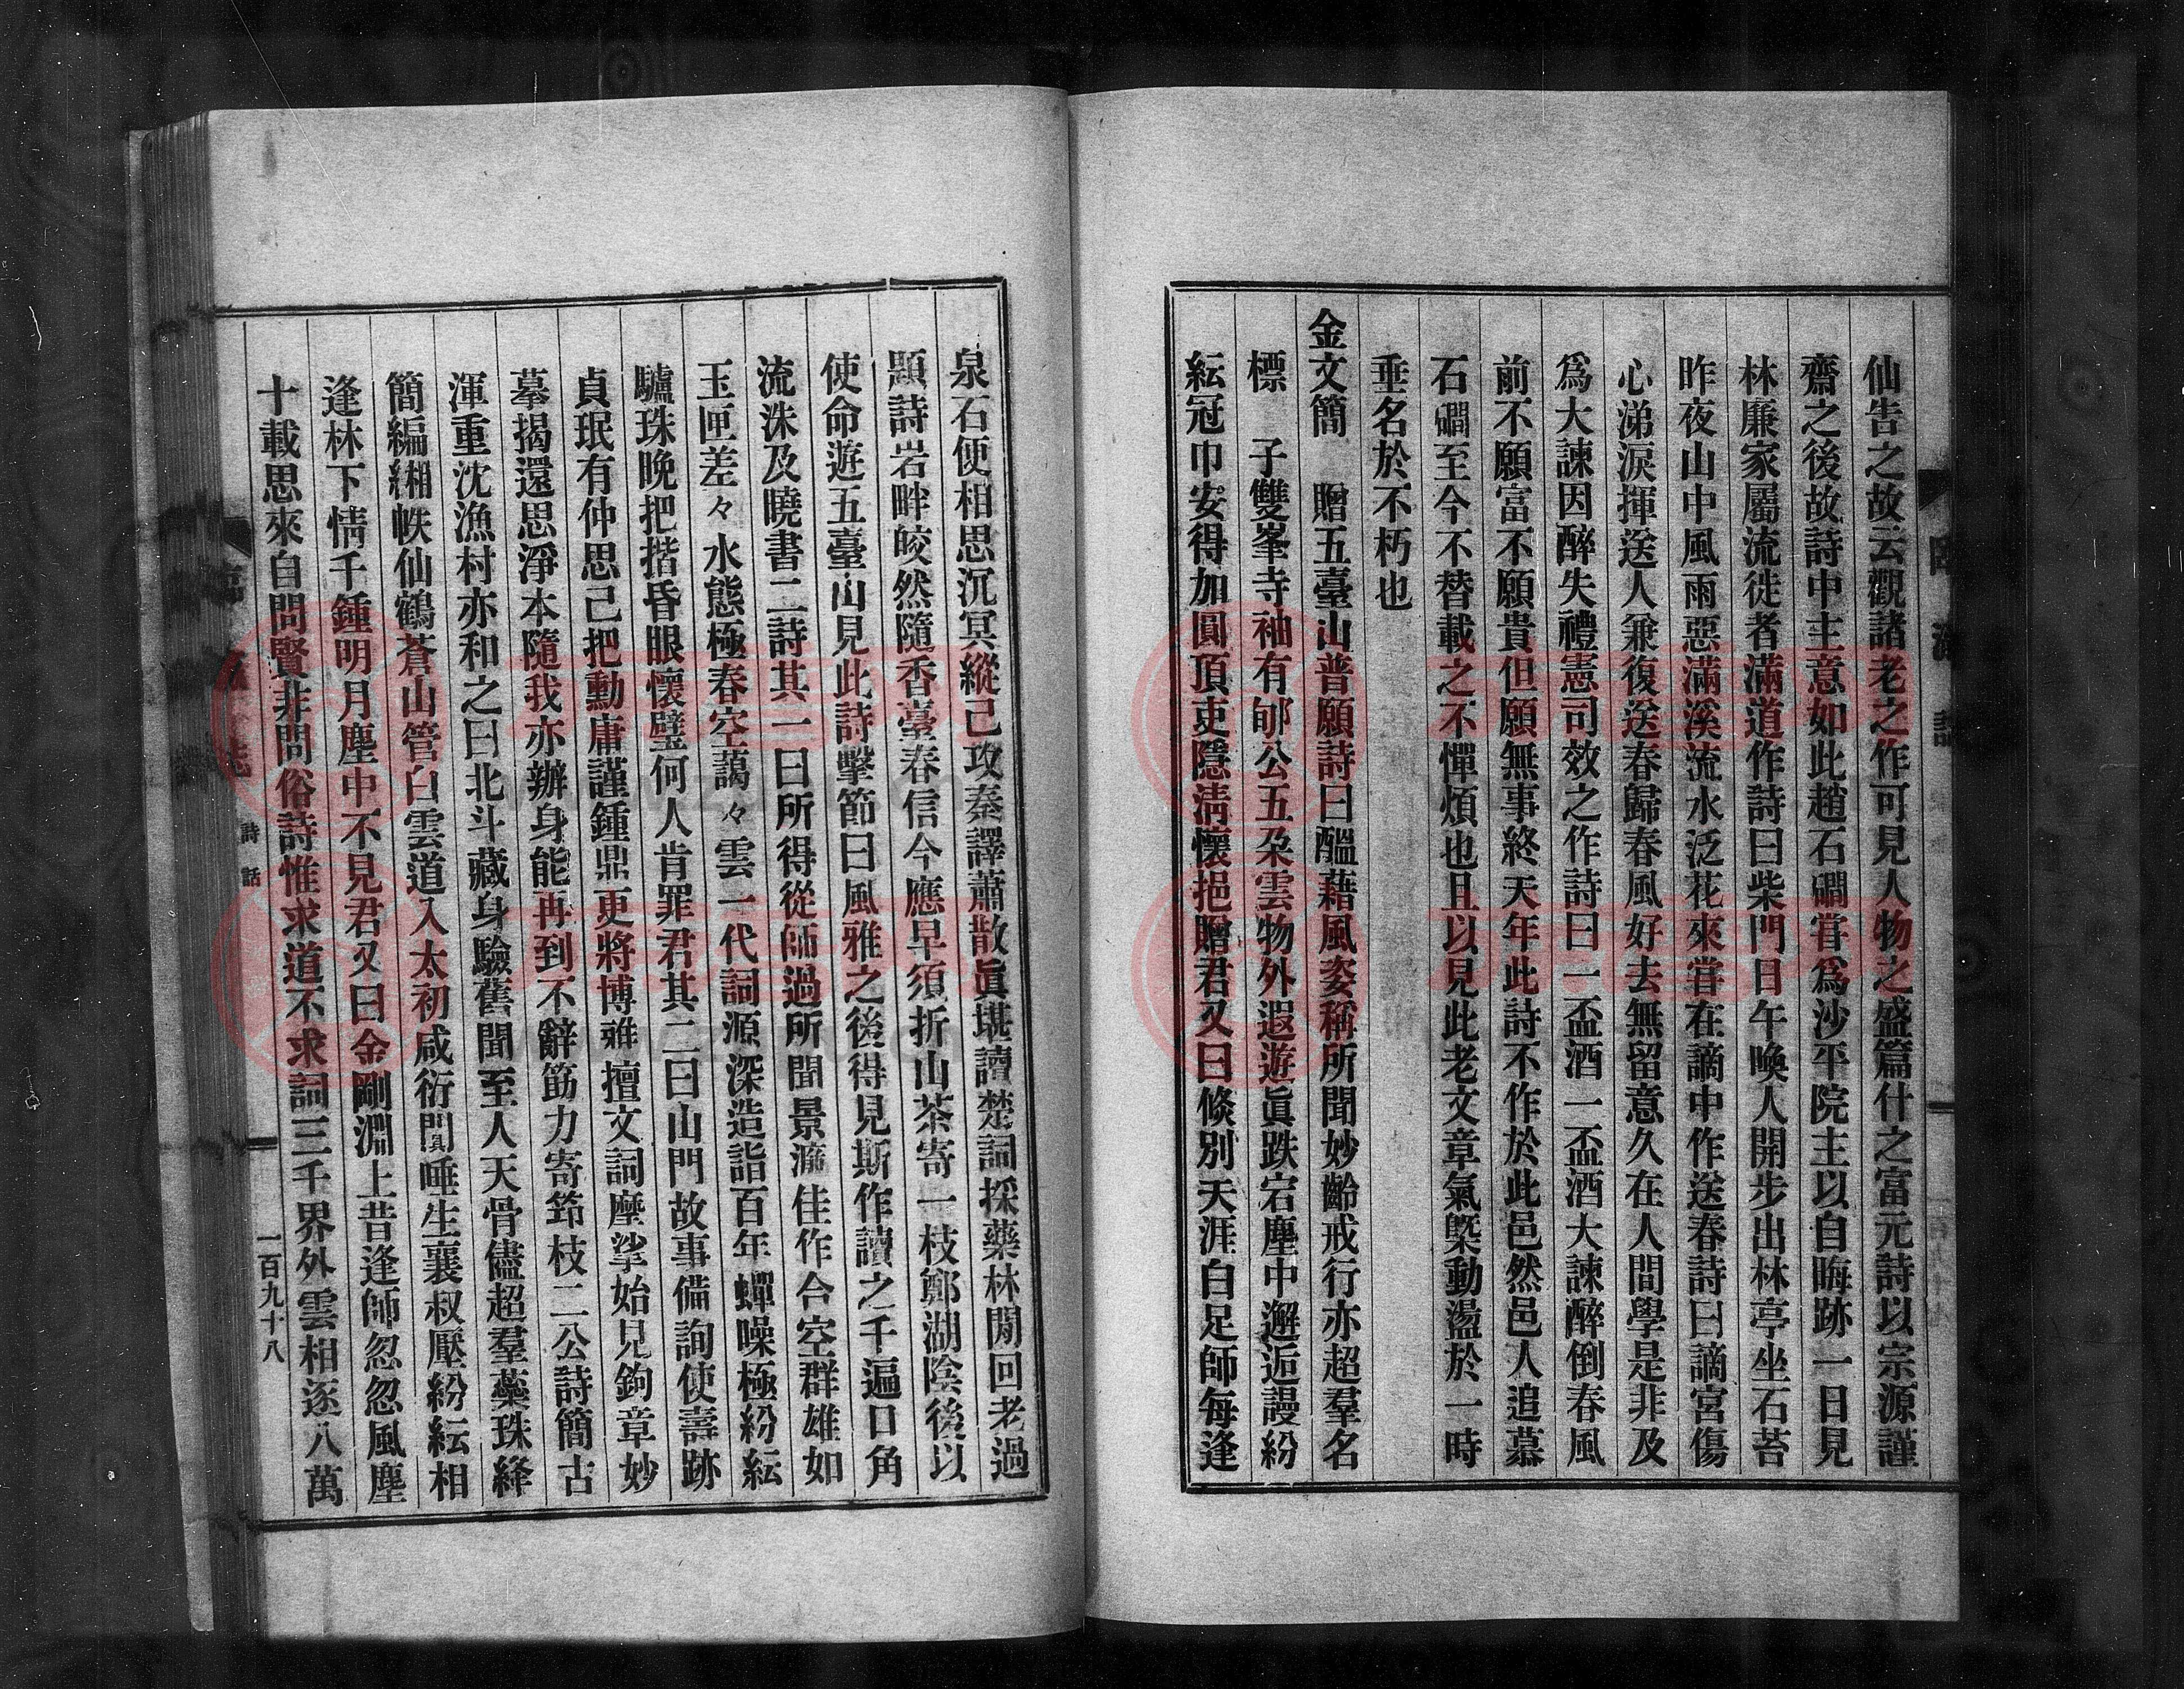 仙告之故云觀諸老之作可見人物之盛篇什之富元詩以宗源謹
齋之後故詩中主意如此趙石磵嘗爲沙平院主以自晦跡一日見
林廉家屬流徙者滿道作詩曰柴門日午喚人開步出林亭坐石苔
昨夜山中風雨惡滿溪流水泛花來嘗在謫中作送春詩曰謫宮傷
心涕淚揮送人兼復送春歸春風好去無留意久在人間學是非及
爲大諫因醉失禮憲司效之作詩曰一盃酒一盃酒大諫醉倒春風
前不願富不願貴但願無事終天年此詩不作於此邑然邑人追慕
石磵至今不替載之不憚煩也且以見此老文章氣槩動盪於一時
垂名於不朽也
金文簡 贈五臺山普願詩曰醞藉風姿稱所聞妙齡戒行亦超羣名
標 子雙峯寺袖有郇公五朶雲物外遐遊眞跌宕塵中邂逅謾紛
紜冠巾安得加圓頂吏隱淸懷挹贈君又曰倐別天涯白足師每逢
泉石便相思沉冥縱己攻秦譯蕭散眞堪讀楚詞採藥林閒回老過
題詩岩畔皎然隨香臺春信今應早須折山茶寄一枝鄭湖陰後以
使命遊五臺山見此詩擊節曰風雅之後得見斯作讀之千遍口角
流沫及曉書二詩其一曰所得從師過所聞景濂佳作合空群雄如
玉匣差々水態極春空藹々雲一代詞源深造詣百年蟬噪極紛紜
驪珠晚把揩昏眼懷璧何人肯罪君其二曰山門故事備詢使壽跡
貞珉有仲思己把勳庸謹鍾鼎更將博雅擅文詞摩挲始見鉤章妙
摹揭還思淨本隨我亦辦身能再到不辭筋力寄筇枝二公詩簡古
渾重沈漁村亦和之曰北斗藏身驗舊聞至人天骨儘超羣蘂珠絳
簡編緗帙仙鶴蒼山管白雲道入太初咸衍闃睡生襄叔壓紛紜相
逢林下情千鍾明月塵中不見君又曰金剛淵上昔逢師忽忽風塵
十載思來自問賢非問俗詩惟求道不求詞三千界外雲相逐八萬
詩話
一百九十八